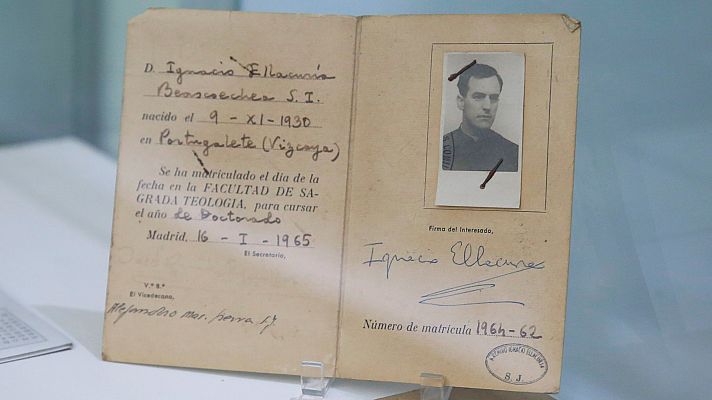 D. Ignacio Ellacuría
Beascoechea S. I.
nacido el 9 - XI - 1930
en Portugalete (Vizcaya)
Se ha matriculado el día de la
fecha en la FACULTAD DE SA-
GRADA TEOLOGIA, para cursar
el año de Doctorado
Madrid, 16 - I - 1965
El Secretario,
V.º B.º
El Vicedecano,
Alejandro
S.J.
Firma del Interesado,
Ignacio Ellacuría
Número de matrícula 1964-62
IGNACIO ELLACURIA
S. J.